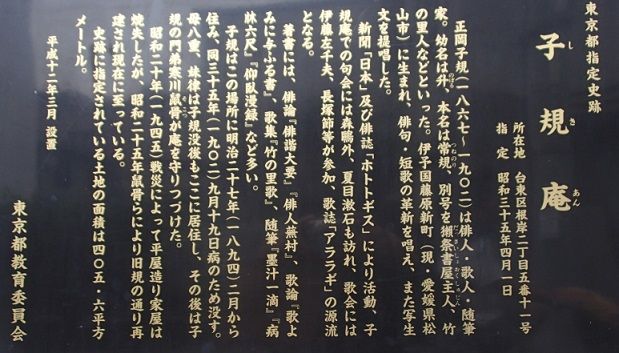 東京都指定史跡
子規庵
しきあん
所在地 台東区根岸二丁目五番十一号
指定 昭和三十五年四月一日
正岡子規(一八六七〜一九〇二)は俳人・歌人・随筆
家。幼名は升、本名は常規、別号を獺祭書屋主人、竹
の里人などといった。伊予国藤原新町(現・愛媛県松
山市)に生まれ、俳句・短歌の革新を唱え、また写生
文を提唱した。
新聞「日本」及び俳誌「ホトトギス」により活動、子
規庵での句会には森鷗外、夏目漱石も訪れ、歌会には
伊藤左千夫、長塚節等が参加、歌誌「アララギ」の源流
となる。
著書には、俳論『俳諧大要』『俳人蕪村』、歌論『歌よ
みに与ふる書』、歌集『竹の里歌』、随筆『墨汁一滴』『病
牀六尺』『仰臥漫録』など多い。
子規はこの場所に明治二十七年(一八九四)二月から
住み、同三十五年(一九〇二)九月十九日病のため没す。
母八重、妹律は子規没後もここに居住し、その後は子
規の門弟寒川鼠骨が庵を守りつづけた。
昭和二十年(一九四五)戦災によって平屋造り家屋は
焼失したが、昭和二十五年鼠骨らにより旧規の通り再
建され現在に至っている。
史跡に指定されている土地の面積は四〇五・六平方
メートル。
平成十二年三月 設置
東京都教育委員会